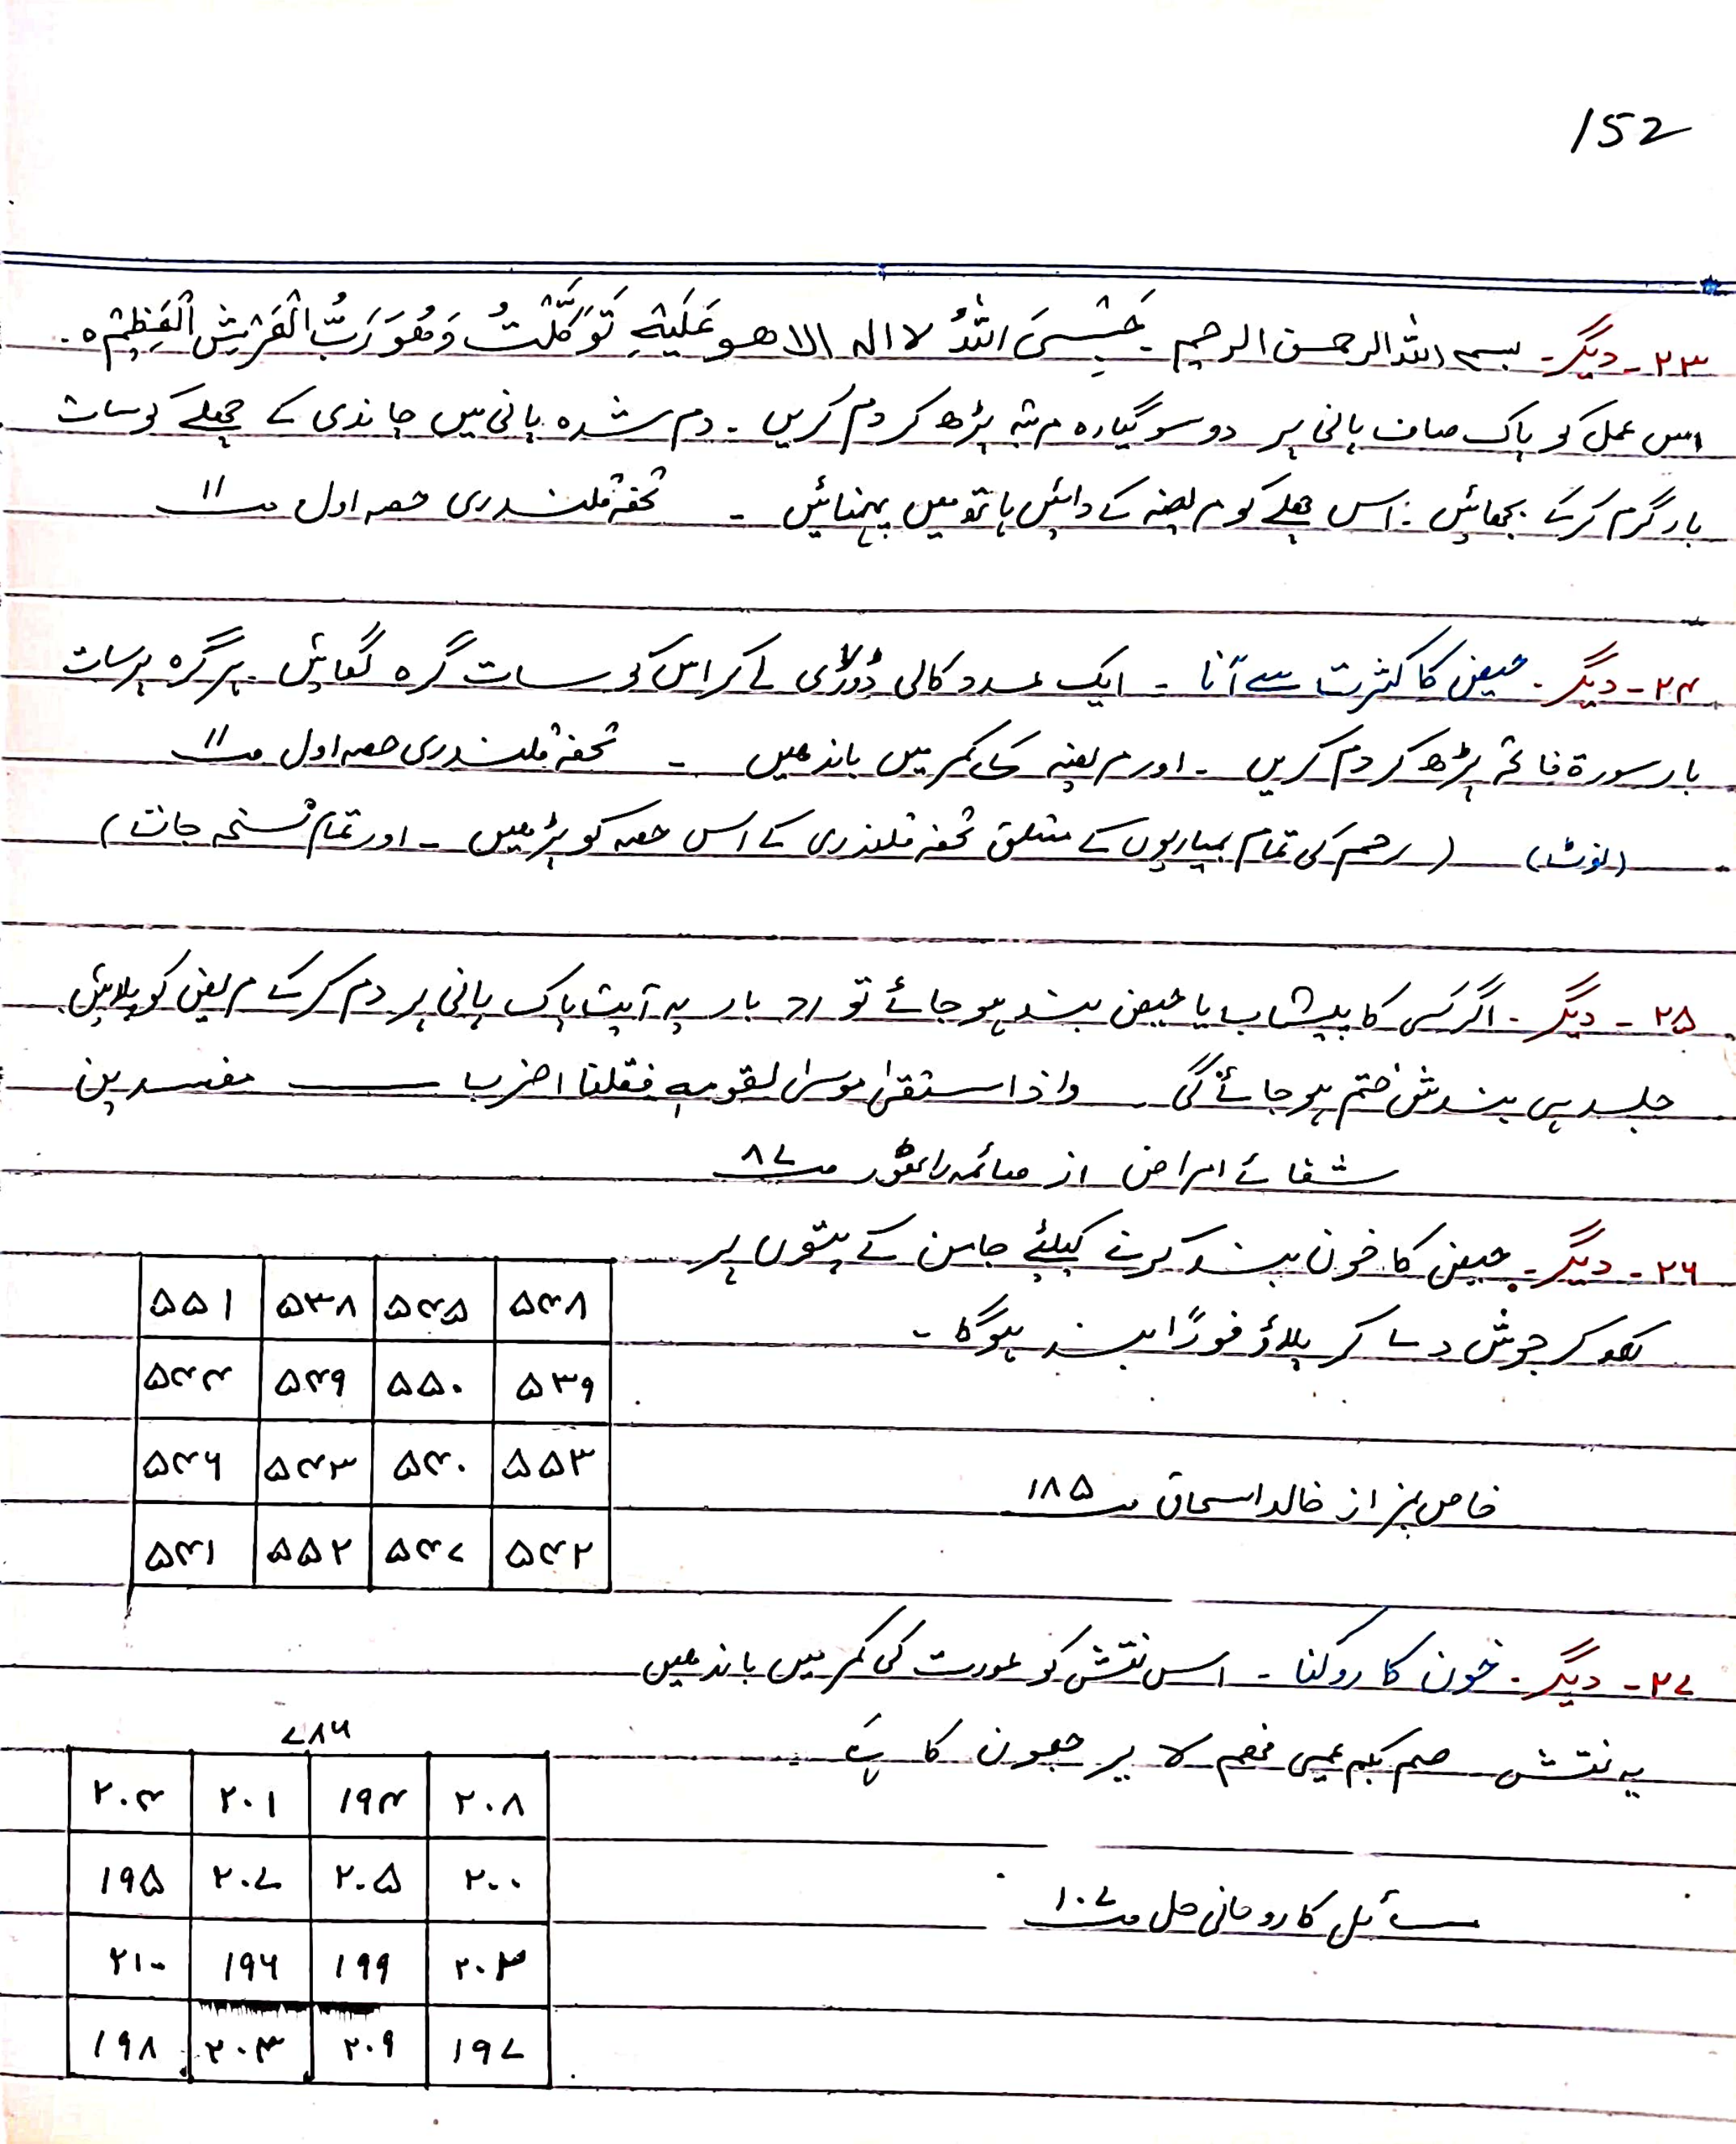 152
۲۳۔ دیگر۔ بسم اللہ الرحمن الرحیم۔ حَسْبِیَ اللّٰهُ لا اله الا هو عَلَیْهِ تَوَکَّلْتُ وَهُوَ رَبُّ الْعَرْشِ الْعَظِیْمِ ہ۔
اس عمل کو پاک صاف پانی پر دو سو گیارہ مرتبہ پڑھ کر دم کریں۔ دم شدہ پانی میں چاندی کے چھلے کو سات
بار گرم کرکے بجھائیں۔ اس چھلے کو مریضہ کے دائیں ہاتھ میں پہنائیں ۔ تحفہ قلندری حصہ اول صـ ۱۱
۲۴۔ دیگر۔ حیض کا کثرت سے آنا ۔ ایک عدد کالی ڈوڑی لے کر اس کو سات گرہ لگائیں۔ ہر گرہ پر سات
بار سورۃ فاتحہ پڑھ کر دم کریں ۔ اور مریضہ کے کمر میں باندھیں ۔ تحفہ قلندری حصہ اول صـ ۱۱
(نوٹ) (رحم کی تمام بیماریوں کے متعلق تحفہ قلندری کے اس حصہ کو پڑھیں ۔ اور تمام نسخہ جات)
۲۵۔ دیگر۔ اگر کسی کا پیشاب یا حیض بند ہو جائے تو بار یہ آیت پاک پانی پر دم کرکے مریض کو پلائیں
جلد ہی بندش ختم ہو جائے گی ۔ واذا ستقیٰ موسیٰ لقومہ فقلنا اضرب ـــــ مفسدین
شفائے امراض از صائمہ راٹھور صـ ۸۷
۲۶۔ دیگر۔ حیض کا خون بند کرنے کیلئے جامن کے پتوں پر
لکھ کر جوش دے کر پلاؤ فوراً بند ہوگا ۔
۵۴۸ ۵۴۵ ۵۳۸ ۵۵۱
۵۳۹ ۵۵۰ ۵۴۹ ۵۴۴
۵۵۳ ۵۴۰ ۵۴۳ ۵۴۶
۵۴۲ ۵۴۷ ۵۵۲ ۵۴۱
خاص نمبر از خالد اسحاق صـ ۱۸۵
۲۷۔ دیگر۔ خون کا روکنا ۔ اس نقش کو عورت کی کمر میں باندھیں
یہ نقش صم بکم عمی فھم لا یرجعون کا ہے ۔
۷۸۶
۲۰۸ ۱۹۴ ۲۰۱ ۲۰۴
۲۰۰ ۲۰۵ ۲۰۷ ۱۹۵
۲۰۳ ۱۹۹ ۱۹۶ ۲۱۰
۱۹۷ ۲۰۹ ۲۰۳ ۱۹۸
مسائل کا روحانی حل صـ ۱۰۷